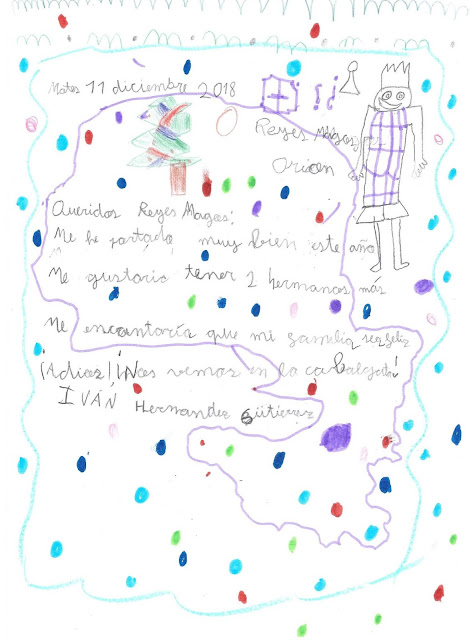 Mates 11 diciembre 2018
Reyes Magos
Orien
Queridos Reyes Magos:
Me he portado muy bien este año
Me gustaria tener 2 hermanos más
Me encantaría que mi familia sea feliz
¡Adios! ¡Nos vemos en la cabalgata!
IVÁN Hernandez Gutierrez